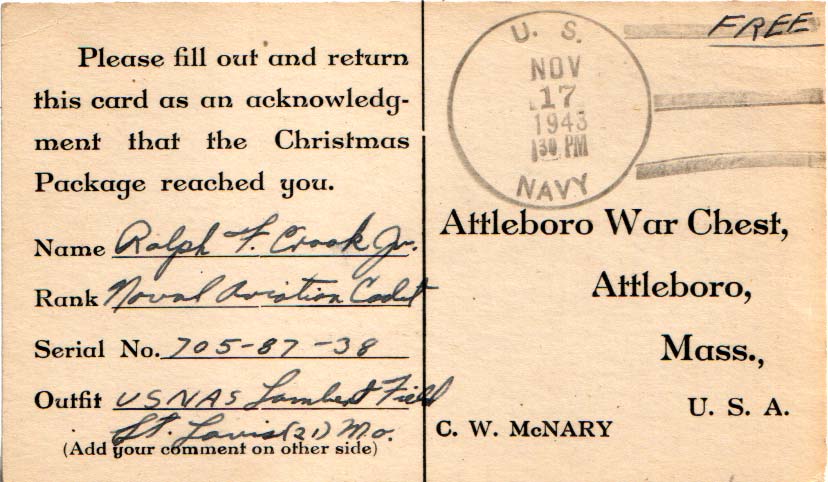 Please fill out and return
this card as an acknowledg-
ment that the Christmas
Package reached you.
Name Ralph F. Crook Jr.
Rank Naval Aviation Cadet
Serial No. 705-87-38
Outfit USNAS Lambert Field
St. Louis (21) Mo.
(Add your comment on other side)
FREE
U. S.
NOV
17
1943
130 PM
NAVY
Attleboro War Chest,
Attleboro,
Mass.,
U. S. A.
C. W. McNARY